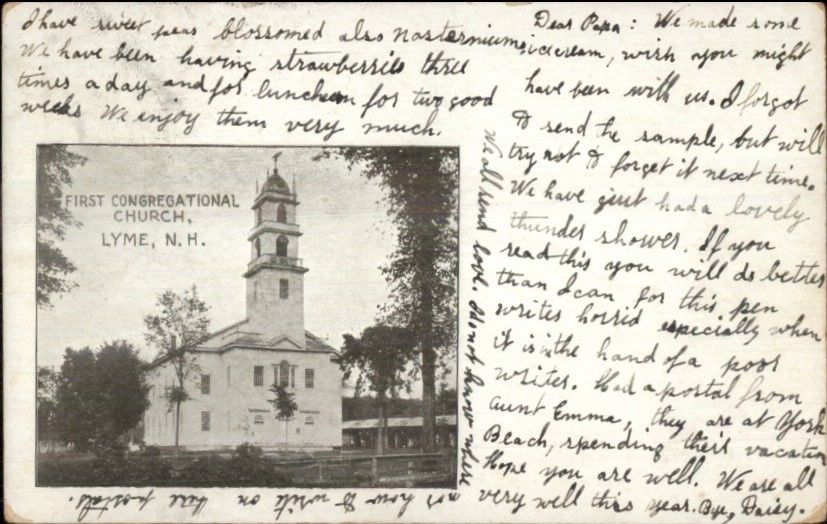 Dear Papa: We made some
icecream, wish you might
have been with us. I forgot
to send the sample, but will
try not to forget it next time.
We have just had a lovely
thunder shower. If you
read this you will do better
than I can for this pen
writes horrid especially when
it is in the hand of a poor
writer. Had a postal from
Aunt Emma, they are at York
Beach, spending their vacation
Hope you are well. We are all
very well this year. Bye, Daisy.
I have sweet peas blossomed also nasterniums
We have been having strawberries three
times a day and for luncheon for two good
weeks We enjoy them very much.
We all send love. I do not know where
nor how to write on these postals.
FIRST CONGREGATIONAL
CHURCH,
LYME, N. H.